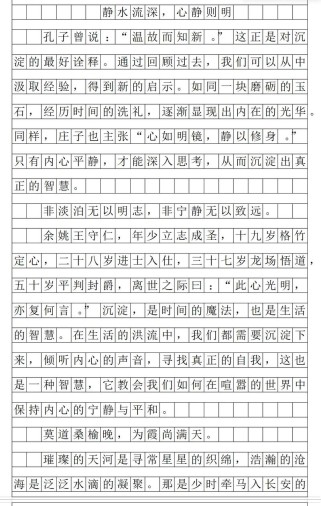 静水流深，心静则明
孔子曾说：“温故而知新。”这正是对沉
淀的最好诠释。通过回顾过去，我们可以从中
汲取经验，得到新的启示。如同一块磨砺的玉
石，经历时间的洗礼，逐渐显现出内在的光华。
同样，庄子也主张“心如明镜，静以修身。”
只有内心平静，才能深入思考，从而沉淀出真
正的智慧。
非淡泊无以明志，非宁静无以致远。
余姚王守仁，年少立志成圣，十九岁格竹
定心，二十八岁进士入仕，三十七岁龙场悟道，
五十岁平判封爵，离世之际曰：“此心光明，
亦复何言。”沉淀，是时间的魔法，也是生活
的智慧。在生活的洪流中，我们都需要沉淀下
来，倾听内心的声音，寻找真正的自我，这也
是一种智慧，它教会我们如何在喧嚣的世界中
保持内心的宁静与平和。
莫道桑榆晚，为霞尚满天。
璀璨的天河是寻常星星的织绵，浩瀚的沧
海是泛泛水滴的凝聚。那是少时牵马入长安的